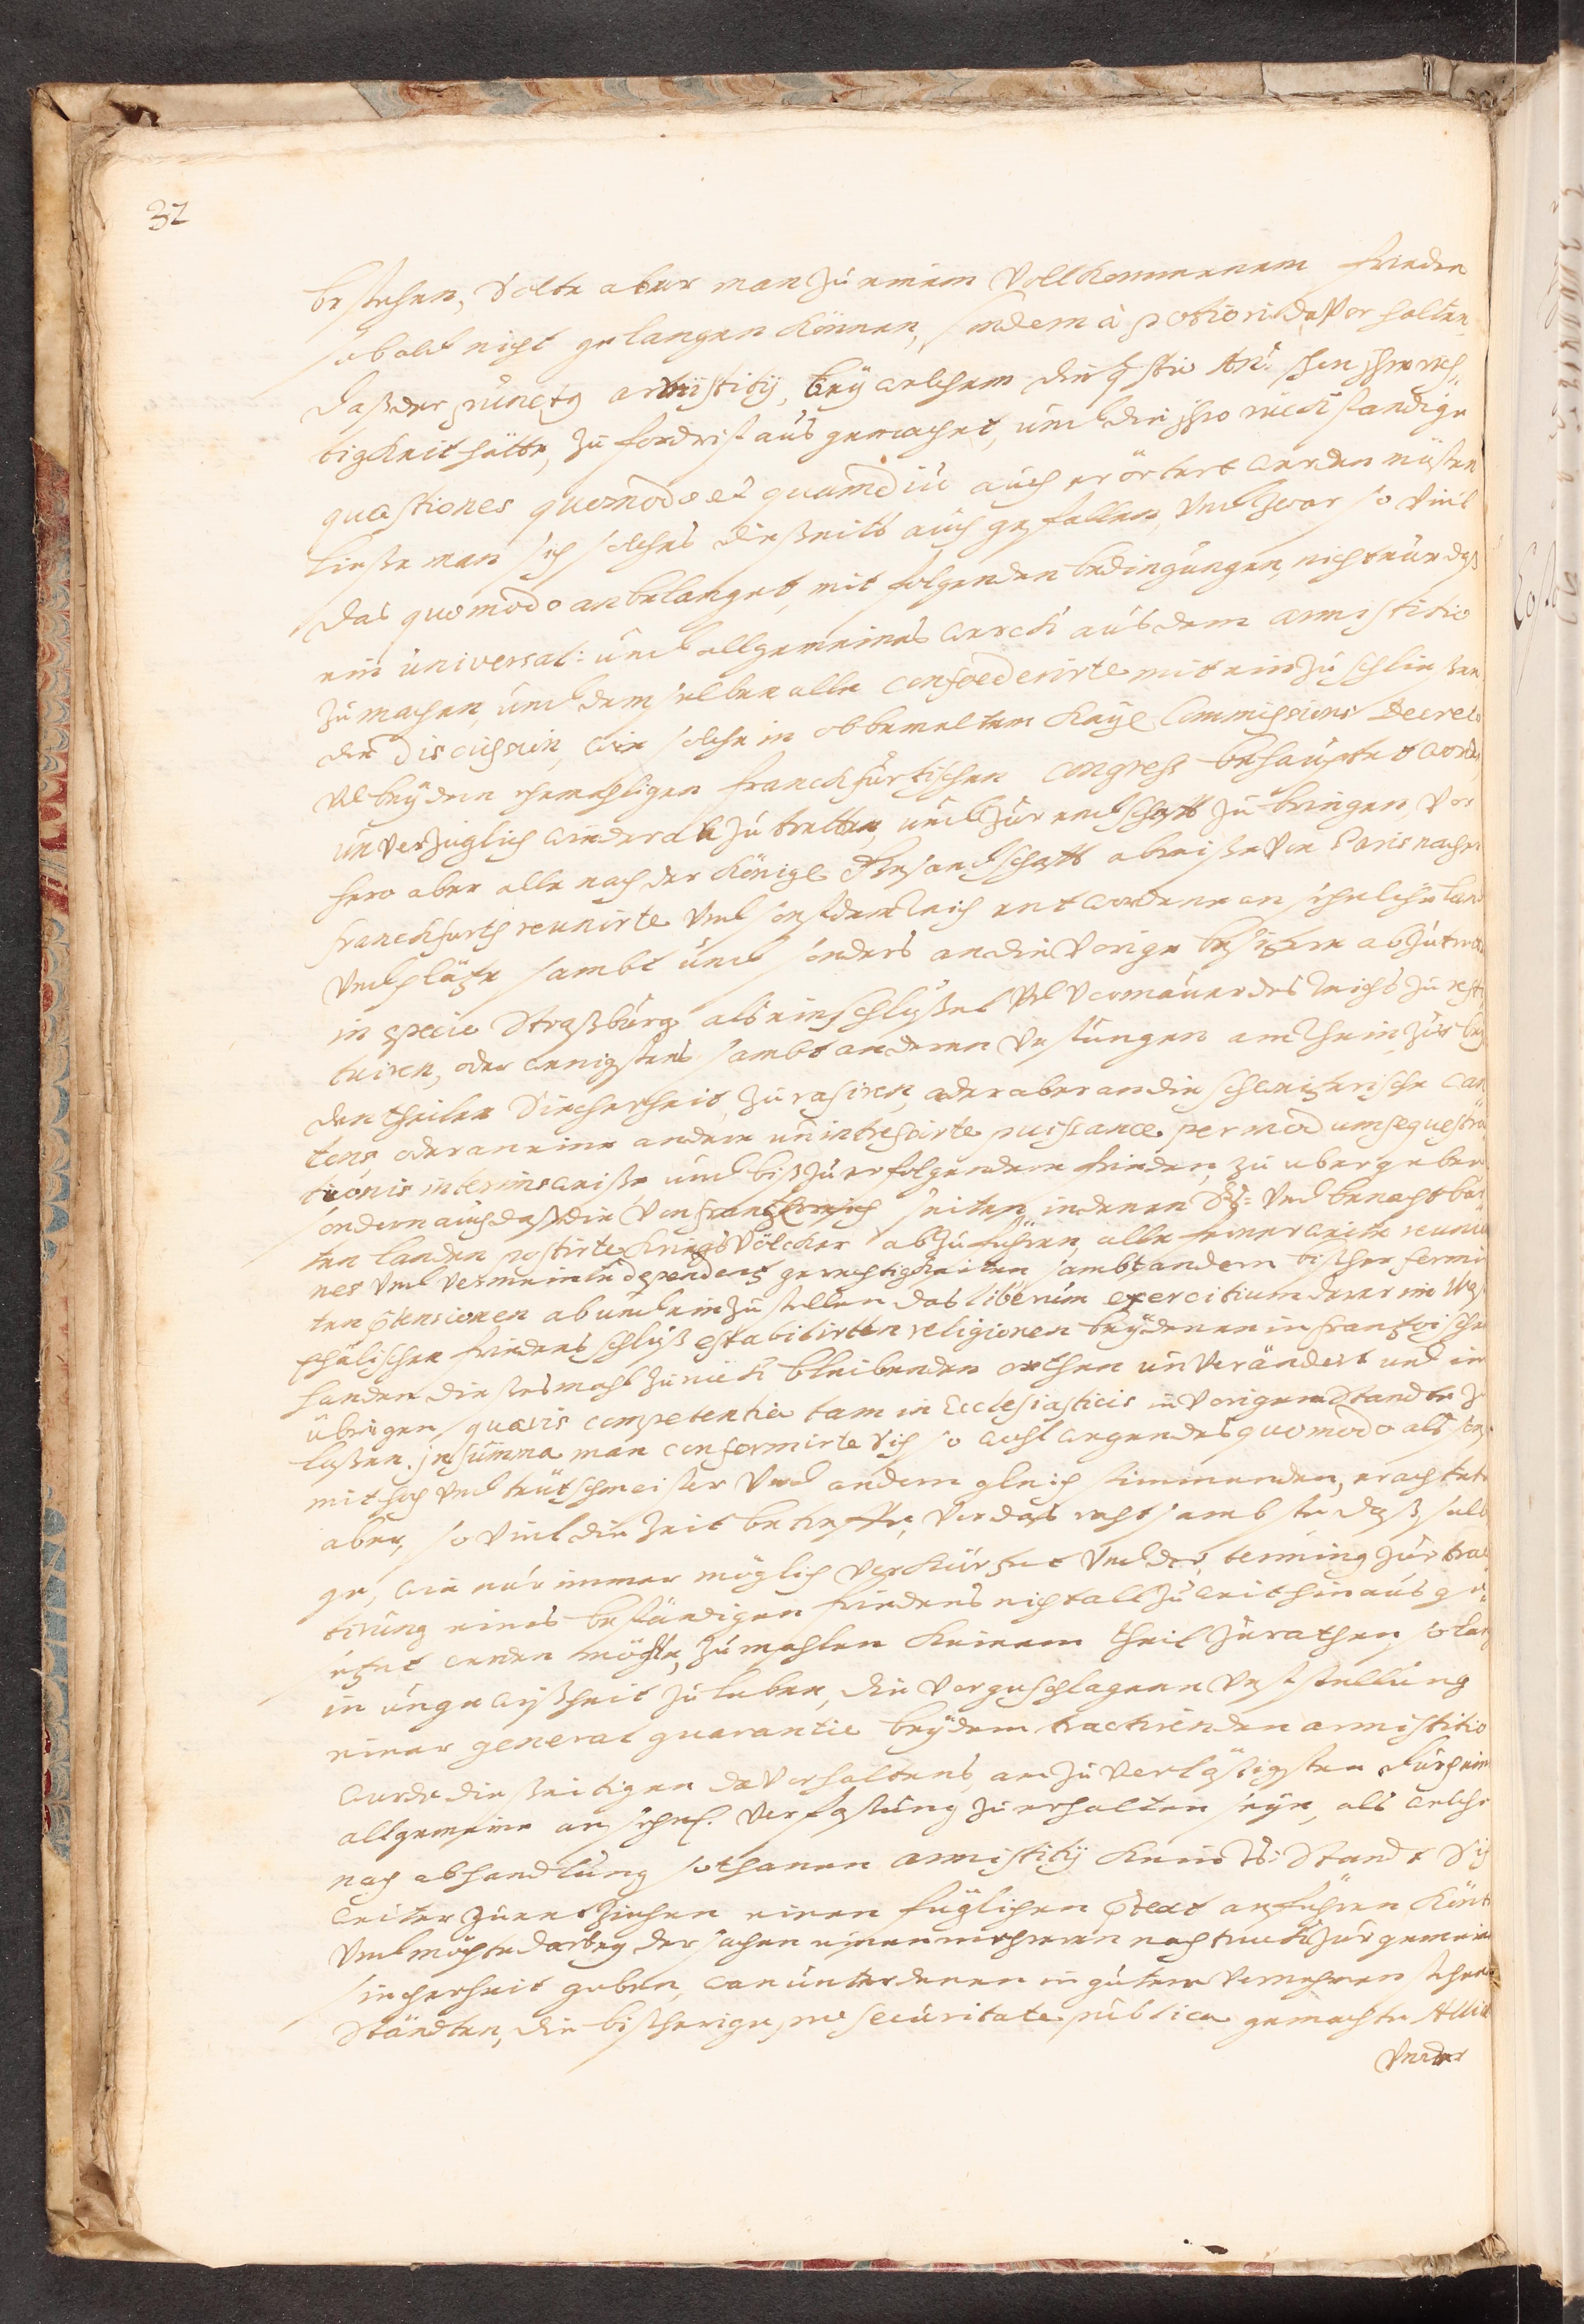 32
bestehen, Solte aber man zu einem Vollkommenem frieden
sobald nicht gelangen können, sondern à potiori davor halten
daß der punctus armistitij, beÿ welchem die qstio An? schon ihre rich„
tigkeit hätte, zu fordrist ausgemachet, und die ihro rückständige
quæstiones quomodo et quamdiu auch erörtert werden müsten
Ließe man sich solches dießeits auch gefallen, Und zwar so Viel
das quomodo anbelanget, mit folgenden bedingungen, nicht nur daß
ein universal: und allgemeines werck aus dem armistitio
zu machen, und demselben alle confœderirte mit einzuschließen
die discussion, wie solche in obbemeltem Kaÿl. Commissions Decreto
Vnd beÿ dem ehemahligen franckfurtischen congress behauptet worden,
unverzüglich wieder anzutretten, und zur endschafft zu bringen, Vor
hero aber alle nach der Königl. Gesandschafft abreiße von Paris nacher
franckfurth reunirte Und sonst dem Reich entwendene ansehnliche Land
Und plätze sambt und sonders an die Vorige besitzere abzutretten
in specie Straßburg als ein schlüßel Vnd Vormauer des Reichs zu resti
tuiren, oder wenigstens sambt anderen Vestungen am Rhein zur bey
den theilen Siecherheit zu rasiren, oder aber an die schweitzerische Can
tons, oder an eine andere unintressirte puissance per modum sequestra
tionis interimsweiße und biß zu erfolgendem frieden, zu übergeben
sondern auch daß die Von Franckreich seiten, in denen Rs: Und benachbar
ten landen postirte Kriegsvölcker abzuführen, alle fernerweite reunio
nes Und vermeinte dependenz gerechtigkeiten sambt andern bißher formir
ten prætensionen ab und einzustellen das liberum exercitium derer im West
phälischen friedens schluß estabilirten religionen beÿ denen in frantzöischen
handen dießesmahl zurück bleibenden orthen unverändert und im
übrigen quævis competentia tam in Ecclesiasticis in vorigem Stande zu
laßen. In summa man conformirte sich so wohl wegen des quomodo als sonst
mit hoch Und teütschmeister Und andern gleich stimmenden, erachtete
aber, so Viel die zeit betreffe, Vor das rathsambste daß selbi
ge, wie nur immer möglich verkürtzet Und der terminus zur trac
tirung eines beständigen friedens nicht allzu weit hinaus ge„
setzet werden möchte, zumahlen keinem theil zurathen, so lang
in ungewißheit zu leben, die vorgeschlagene Veststellung
einer general guarantie beÿ dem tractirenden armistitio
wurde dießeitigen davorhaltens, am zuverläßigsten durch eine
allgemeine ansehnl. Verfaßung zu erhalten seÿe, als welche
nach abhandlung sothanen armistitij kein Rs: Standt Sich
weiter zu entziehen einen füglichen prætext anführen könte
Und möchte darbeÿ der sachen einen mehreren nachtruck zur gemeinen
siecherheit geben, wan unter denen in gutem vernehmen stehenden
Ständten, die bißherige pro securitate publica gemachte Allian
Under